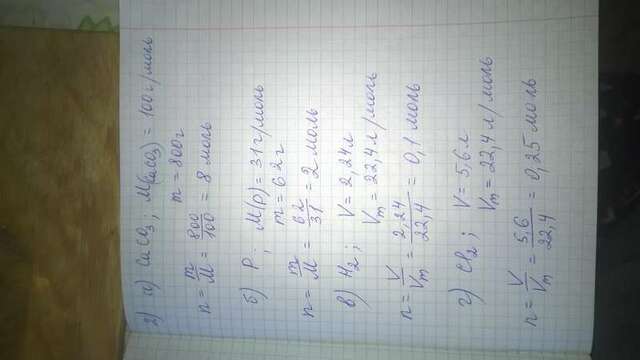 2) а) CaCO₃; M(CaCO₃) = 100 г/моль
m = 800 г
n = m/M = 800/100 = 8 моль
б) P; M(P) = 31 г/моль
m = 62 г
n = m/M = 62/31 = 2 моль
в) H₂; V = 2,24 л
Vm = 22,4 л/моль
n = V/Vm = 2,24/22,4 = 0,1 моль
г) Cl₂; V = 5,6 л
Vm = 22,4 л/моль
n = V/Vm = 5,6/22,4 = 0,25 моль